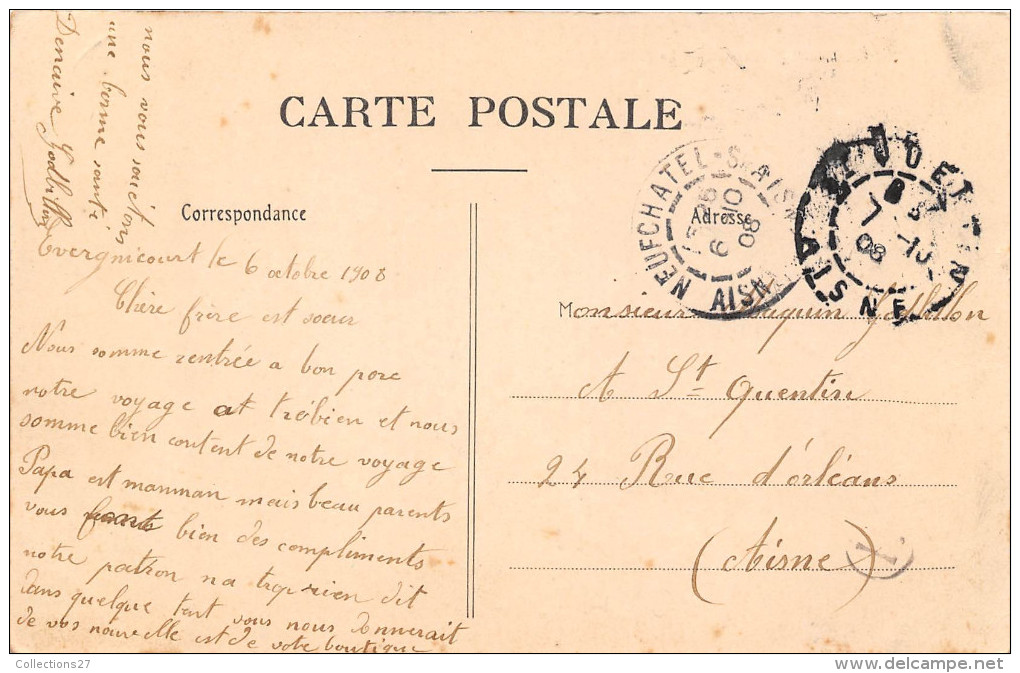 CARTE POSTALE
Correspondance
Adresse
Evergnicourt le 6 octobre 1908
Chère frère est soeur
Nous somme rentrée a bon porc
notre voyage at trébien et nous
somme bien content de notre voyage
Papa est manman mais beau parents
vous bien des compliments
notre patron na trop rien dit
dans quelque tent vous nous donnerait
de vos nouvelle est de votre boutique
nous vous souétons
une bonne santé
Denaive Godbillon
NEUFCHATEL-S-AISNE
AISNE
6 10 08
7 -10 08
AISNE
Monsieur Godbillon
A St Quentin
24 Rue d'orléans
(Aisne)
Collections27
delcampe.net